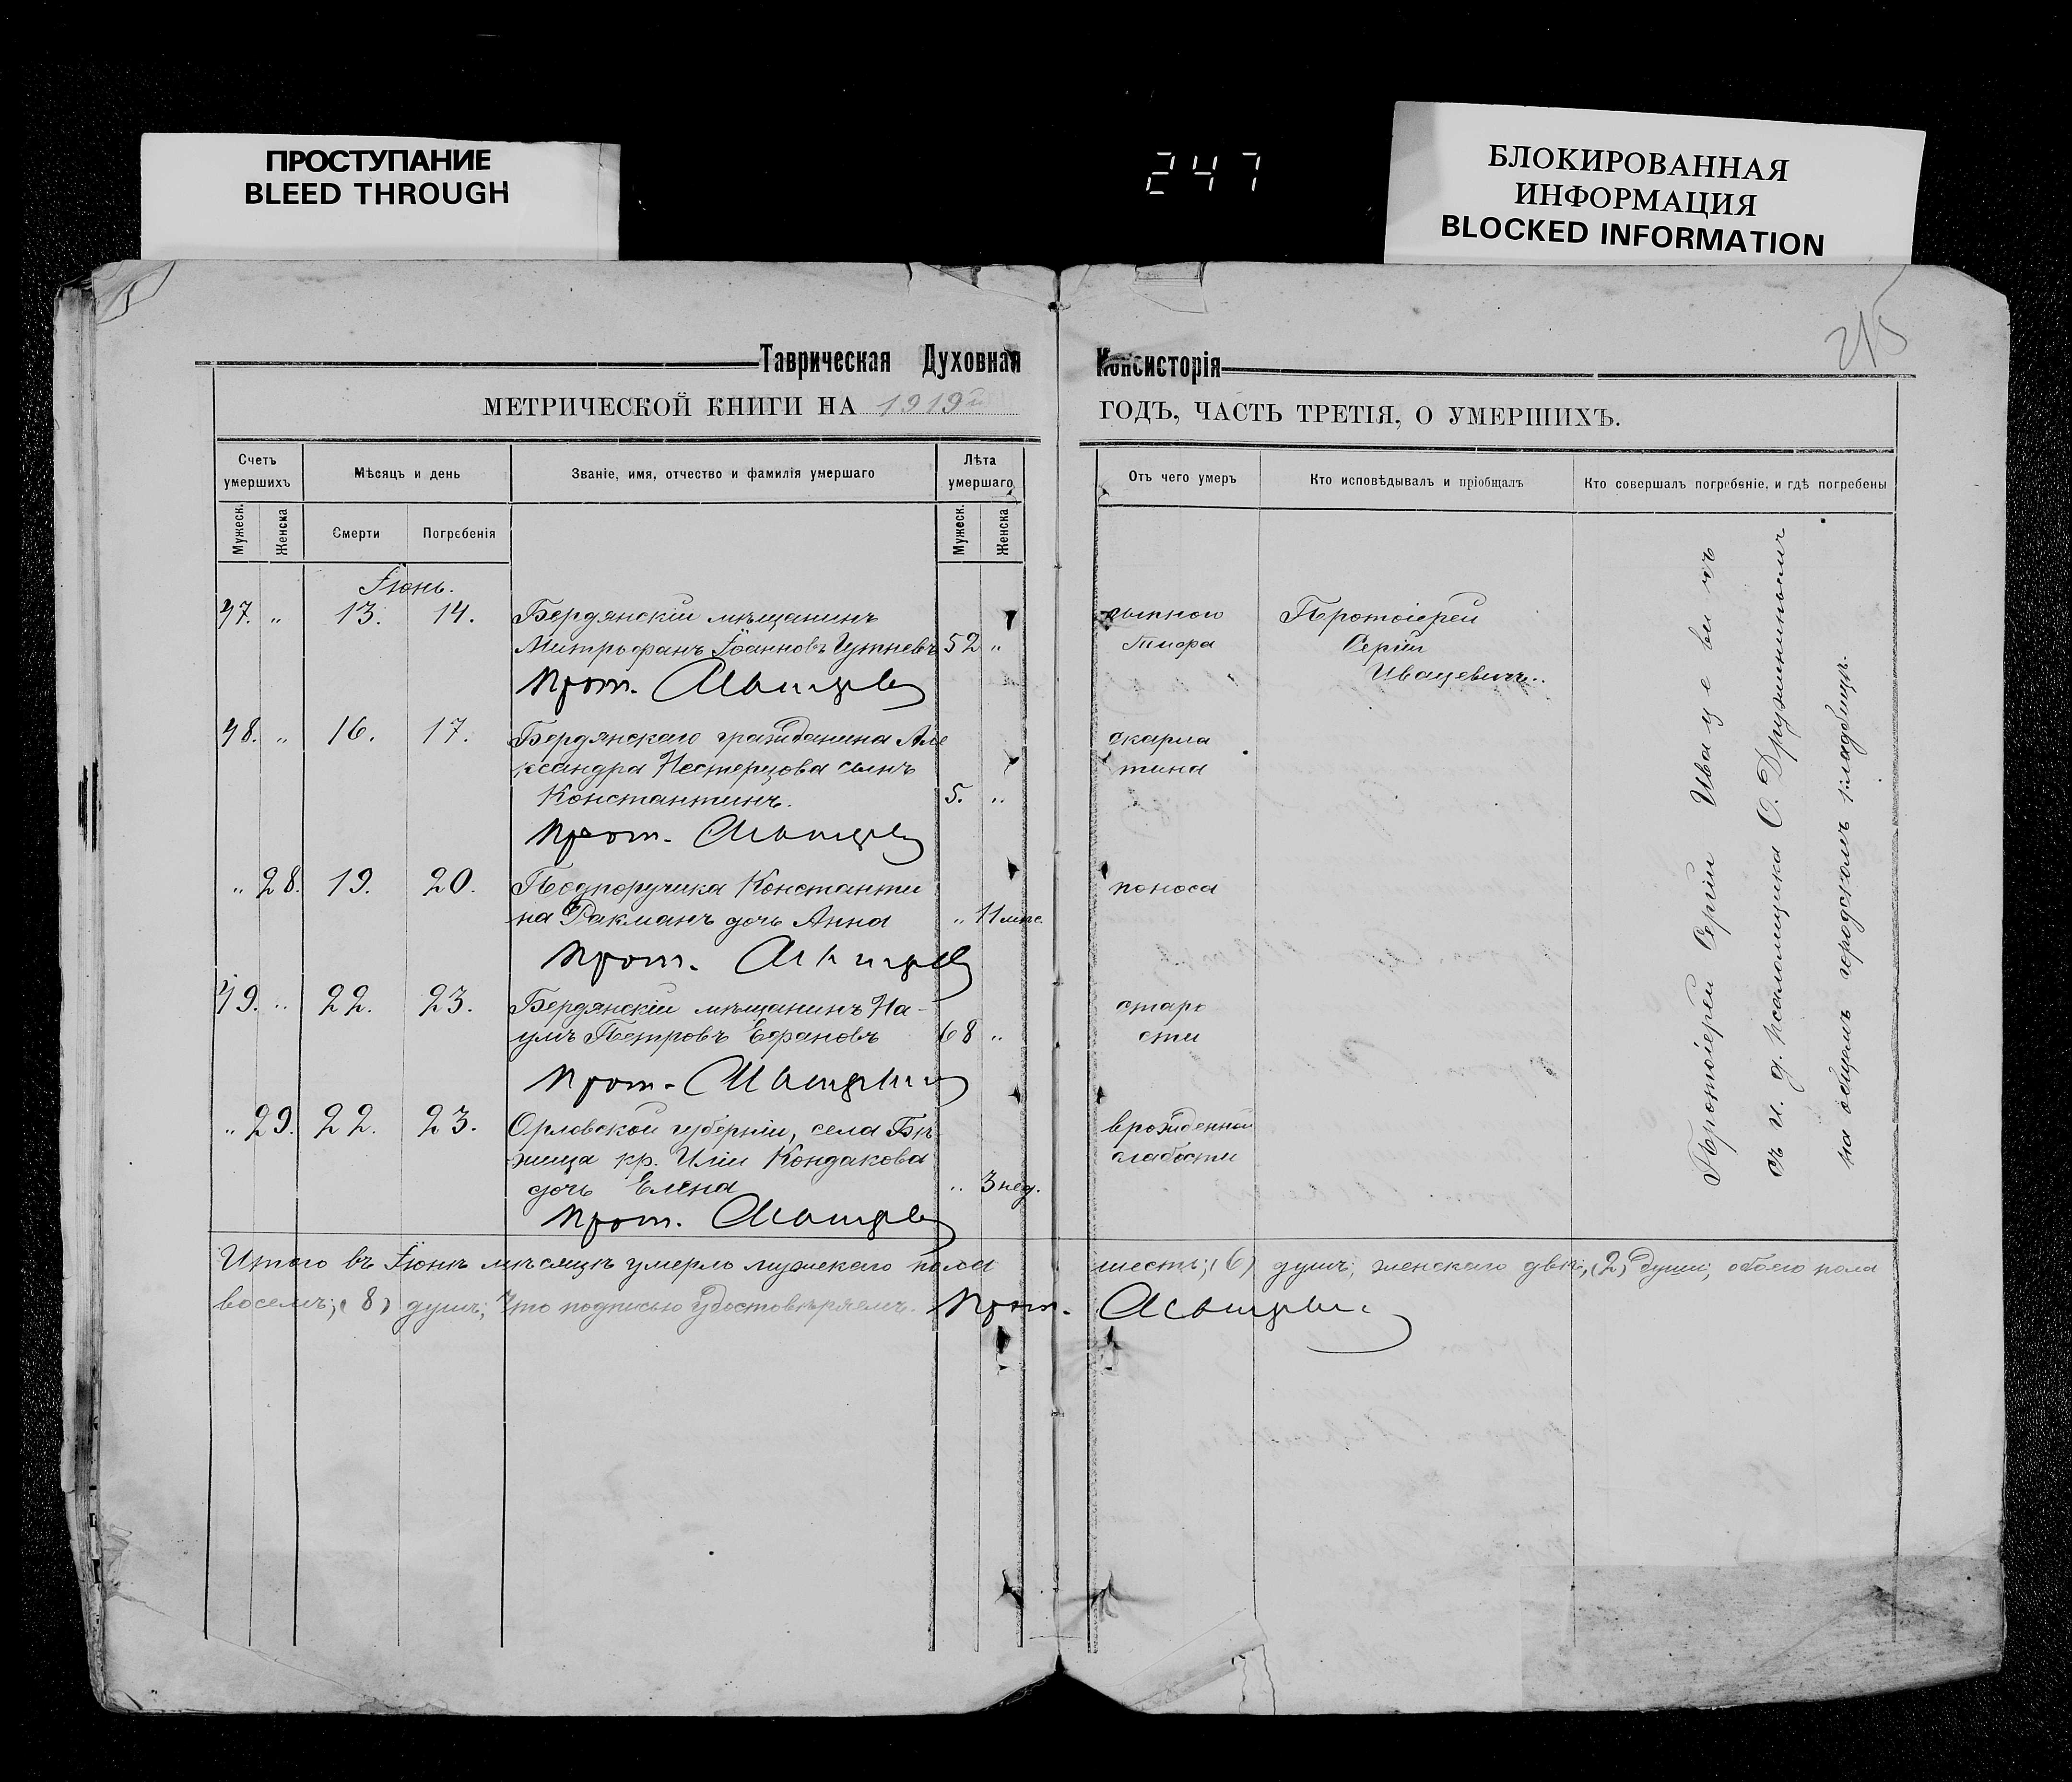 ПРОСТУПАНИЕ
BLEED THROUGH
247
БЛОКИРОВАННАЯ
ИНФОРМАЦИЯ
BLOCKED INFORMATION
215
Таврическая Духовная Консисторія
МЕТРИЧЕСКОЙ КНИГИ НА 1919й ГОДЪ, ЧАСТЬ ТРЕТІЯ, О УМЕРШИХЪ.
Счетъ умершихъ
Мужеск.
Женска
Мѣсяцъ и день
Смерти
Погребенія
Званіе, имя, отчество и фамилія умершаго
Лѣта умершаго
Мужеск.
Женска
Отъ чего умеръ
Кто исповѣдывалъ и пріобщалъ
Кто совершалъ погребеніе, и гдѣ погребены
Іюнь.
47. „ 13. 14. Бердянскій мѣщанинъ
Митрофанъ Іоанновъ 52 „
сыпного
тифа
Протоіерей
Сергій
Иващевичъ.
Прот.
48. „ 16. 17. Бердянскаго гражданина Але
ксандра Нестерцова сынъ
Константинъ. 5. „
скарла
тина
Прот.
„ 28. 19. 20. Подпоручика Константи
на Ракманъ дочь Анна „ 11 мѣс.
поноса
Прот.
49. „ 22. 23. Бердянскій мѣщанинъ На-
умъ Петровъ Ефановъ 68 „
старо
сти
Прот.
„ 29. 22. 23. Орловской губерніи, села Бѣ
жица кр. Иліи Кондакова
дочь Елена „ 3 нед.
врожденной
слабости
Прот.
Протоіерей Сергій Иващевичъ
съ и. д. псаломщика Ѳ. Дружининымъ
на общемъ городскомъ кладбищѣ.
Итого въ Іюнѣ мѣсяцѣ умерло мужского пола шесть; (6) душъ; женскаго двѣ; (2) души; обоего пола
восемь; (8) душъ; Что подписью удостовѣряемъ. Прот.